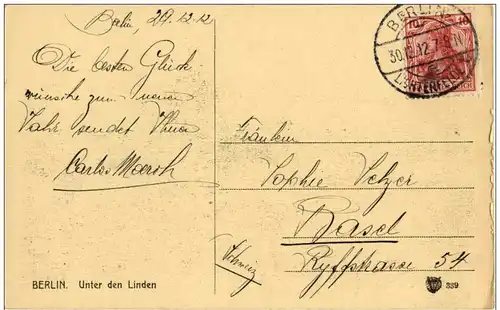 Berlin, 29.12.12
Die besten Glück-
wünsche zum neuen
Jahr sendet Ihnen
Carlos
BERLIN. Unter den Linden
BERLIN
30.12.12.
LICHTERFELDE
10
Fräulein
Sophie
Basel
Schweiz
54
339